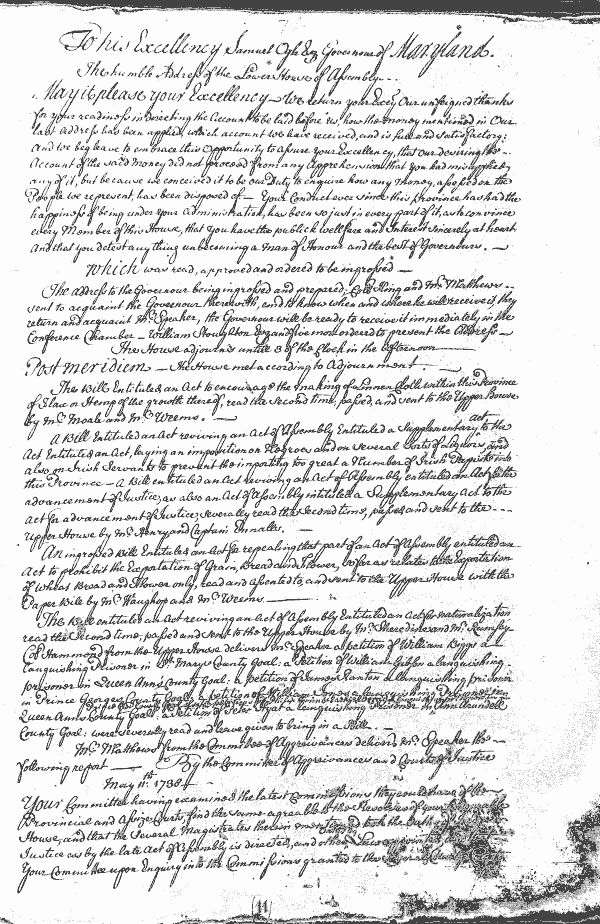 To his Excellency Samuel Ogle Esq. Governour of Maryland.
The humble Address of the Lower House of Assembly
May it please your Excellency We return your Excy. Our unfeigned thanks
for your readiness in directing the Account to be laid before us, how the money mentioned in Our
last address has been applied, which account we have received, and is full and satisfactory:
And we beg leave to embrace this Opportunity to assure your Excellency, that Our desiring the
Account of the said Money did not proceed from any Apprehension that you had misapplied
any of it, but because we conceived it to be our Duty to enquire how any money, assessed on the
People we represent, has been disposed of — Your Conduct ever since this Province has had the
happiness of being under your Administration, has been so just in every part of it, as to convince
every Member of this House, that you have the publick wellfare and Interest sincerely at heart
And that you detest any thing unbecoming a Man of Honour and the best of Governours. —
Which was read, approved and ordered to be ingrossed —
The address to the Governour being ingrossed and prepared; Colo. King and Mr. Matthews
sent to acquaint the Governour therewith, and to know when and where he will receive it, they
return and acquaint Mr. Speaker, the Governour will be ready to receive it immediately in the
Conference Chamber — William Stoughton Esq. and five more ordered to present the Address —
The House adjourns untill 3 of the Clock in the afternoon
Post meridiem — The House met according to Adjournment.
The Bill Entituled an Act to encourage the making of Linnen Cloth within this Province
of Flax or Hemp of the growth thereof, read the Second time, passed, and sent to the Upper House
by Mr. Moale and Mr. Weems. —
A Bill Entituled an Act reviving an Act of Assembly Entituled a Supplementary act to the
Act Entituled an Act, laying an imposition on Negroes and on several Sorts of Liquors, and
also on Irish Servants to prevent the importing too great a Number of Irish Papists into
this Province — A Bill entituled an Act reviving an Act of Assembly entituled an Act for the
advancement of Justice, as also an Act of Assembly entituled a Supplementary Act to the
Act for advancement of Justice severally read the Second time, passed and sent to the
Upper House by Mr. Henry and Captain Ennalls. —
An ingrossed Bill Entituled an Act for repealing that part of an Act of Assembly entituled an
Act to prohibit the Exportation of Grain, Bread and Flower, so far as relates to the Exportation
of Wheat Bread and Flower only, read and assented to, and sent to the Upper House with the
Paper Bill by Mr. Waughop and Mr. Weems.
The Bill entituled an Act reviving an Act of Assembly Entituled an Act for naturalization
read the Second time, passed and sent to the Upper House by Mr. Sheredine and Mr. Rumsey
Col. Hammond from the Upper House delivers Mr. Speaker a petition of William Biggs a
languishing Prisoner in St. Marys County Goal; a Petition of William Gibbs a languishing
prisoner in Queen Ann's County Goal; a petition of a languishing prisoner
in Prince Georges County Goal; a petition of William Jones a languishing Prisoner in
Queen Anns County Goal; a Petition of Peter a languishing Prisoner in Ann Arundell
County Goal: were severally read and leave given to bring in a Bill.
Mr. Matthews from the Committee of Aggrievances delivers Mr. Speaker the
following report — By the Committee of Aggrievances and Courts of Justice
May 11th. 1738
Your Committee having examined the latest Commissions they could have of the
Provincial and Assize Courts, find the same agreeable to the Resolves of your
House, and that the Several Magistrates therein mentioned took the Oath of
Justice as by the late Act of Assembly is directed, and other Laws appointed
Your Committee upon Enquiry into the Commissions granted to the Several
11